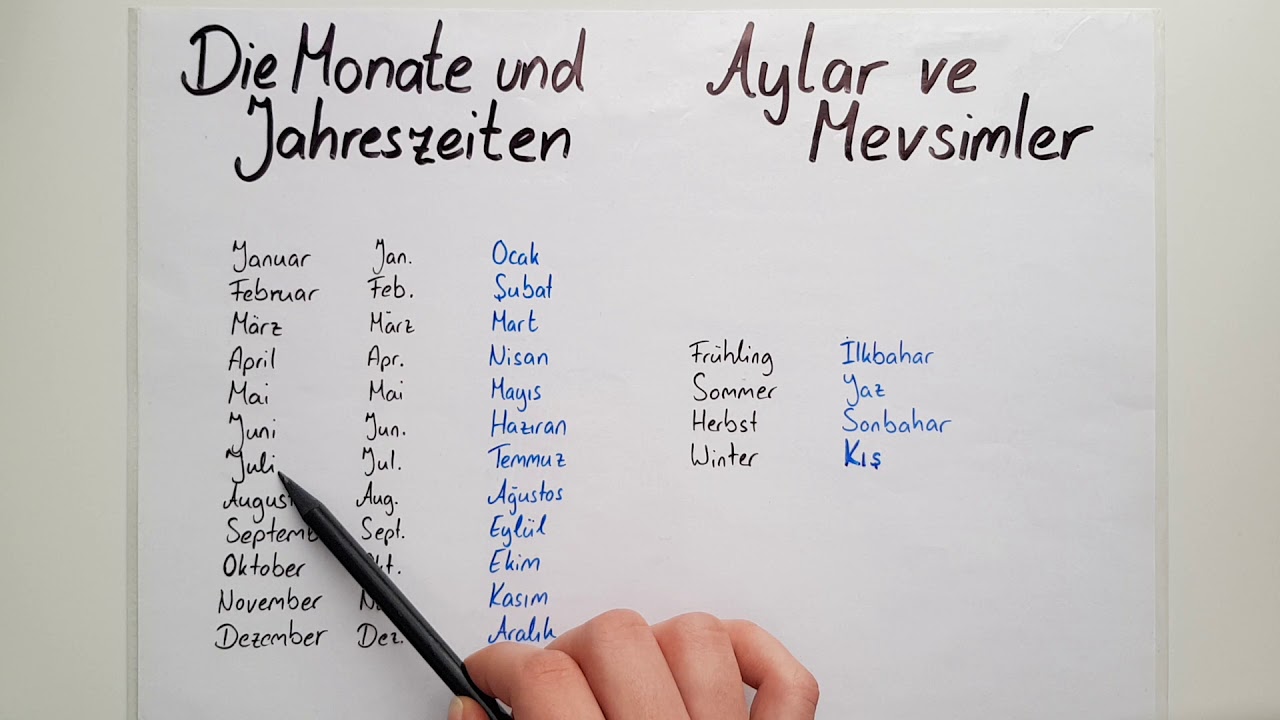 Die Monate und
Jahreszeiten
Aylar ve
Mevsimler
Januar Jan. Ocak
Februar Feb. Şubat
März März Mart
April Apr. Nisan
Mai Mai Mayıs
Juni Jun. Haziran
Juli Jul. Temmuz
August Aug. Ağustos
Septemb Sept. Eylül
Oktober Ekim
November Kasım
Dezember Dez. Aralık
Frühling İlkbahar
Sommer Yaz
Herbst Sonbahar
Winter Kış